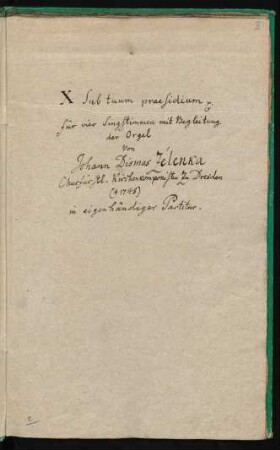 X Sub tuum praesidium
für vier Singstimmen mit Begleitung
der Orgel
von
Johann Dismas Zelenka
Churfürstl. Kirchencomponisten zu Dresden
(† 1745)
in eigenhändiger Partitur.